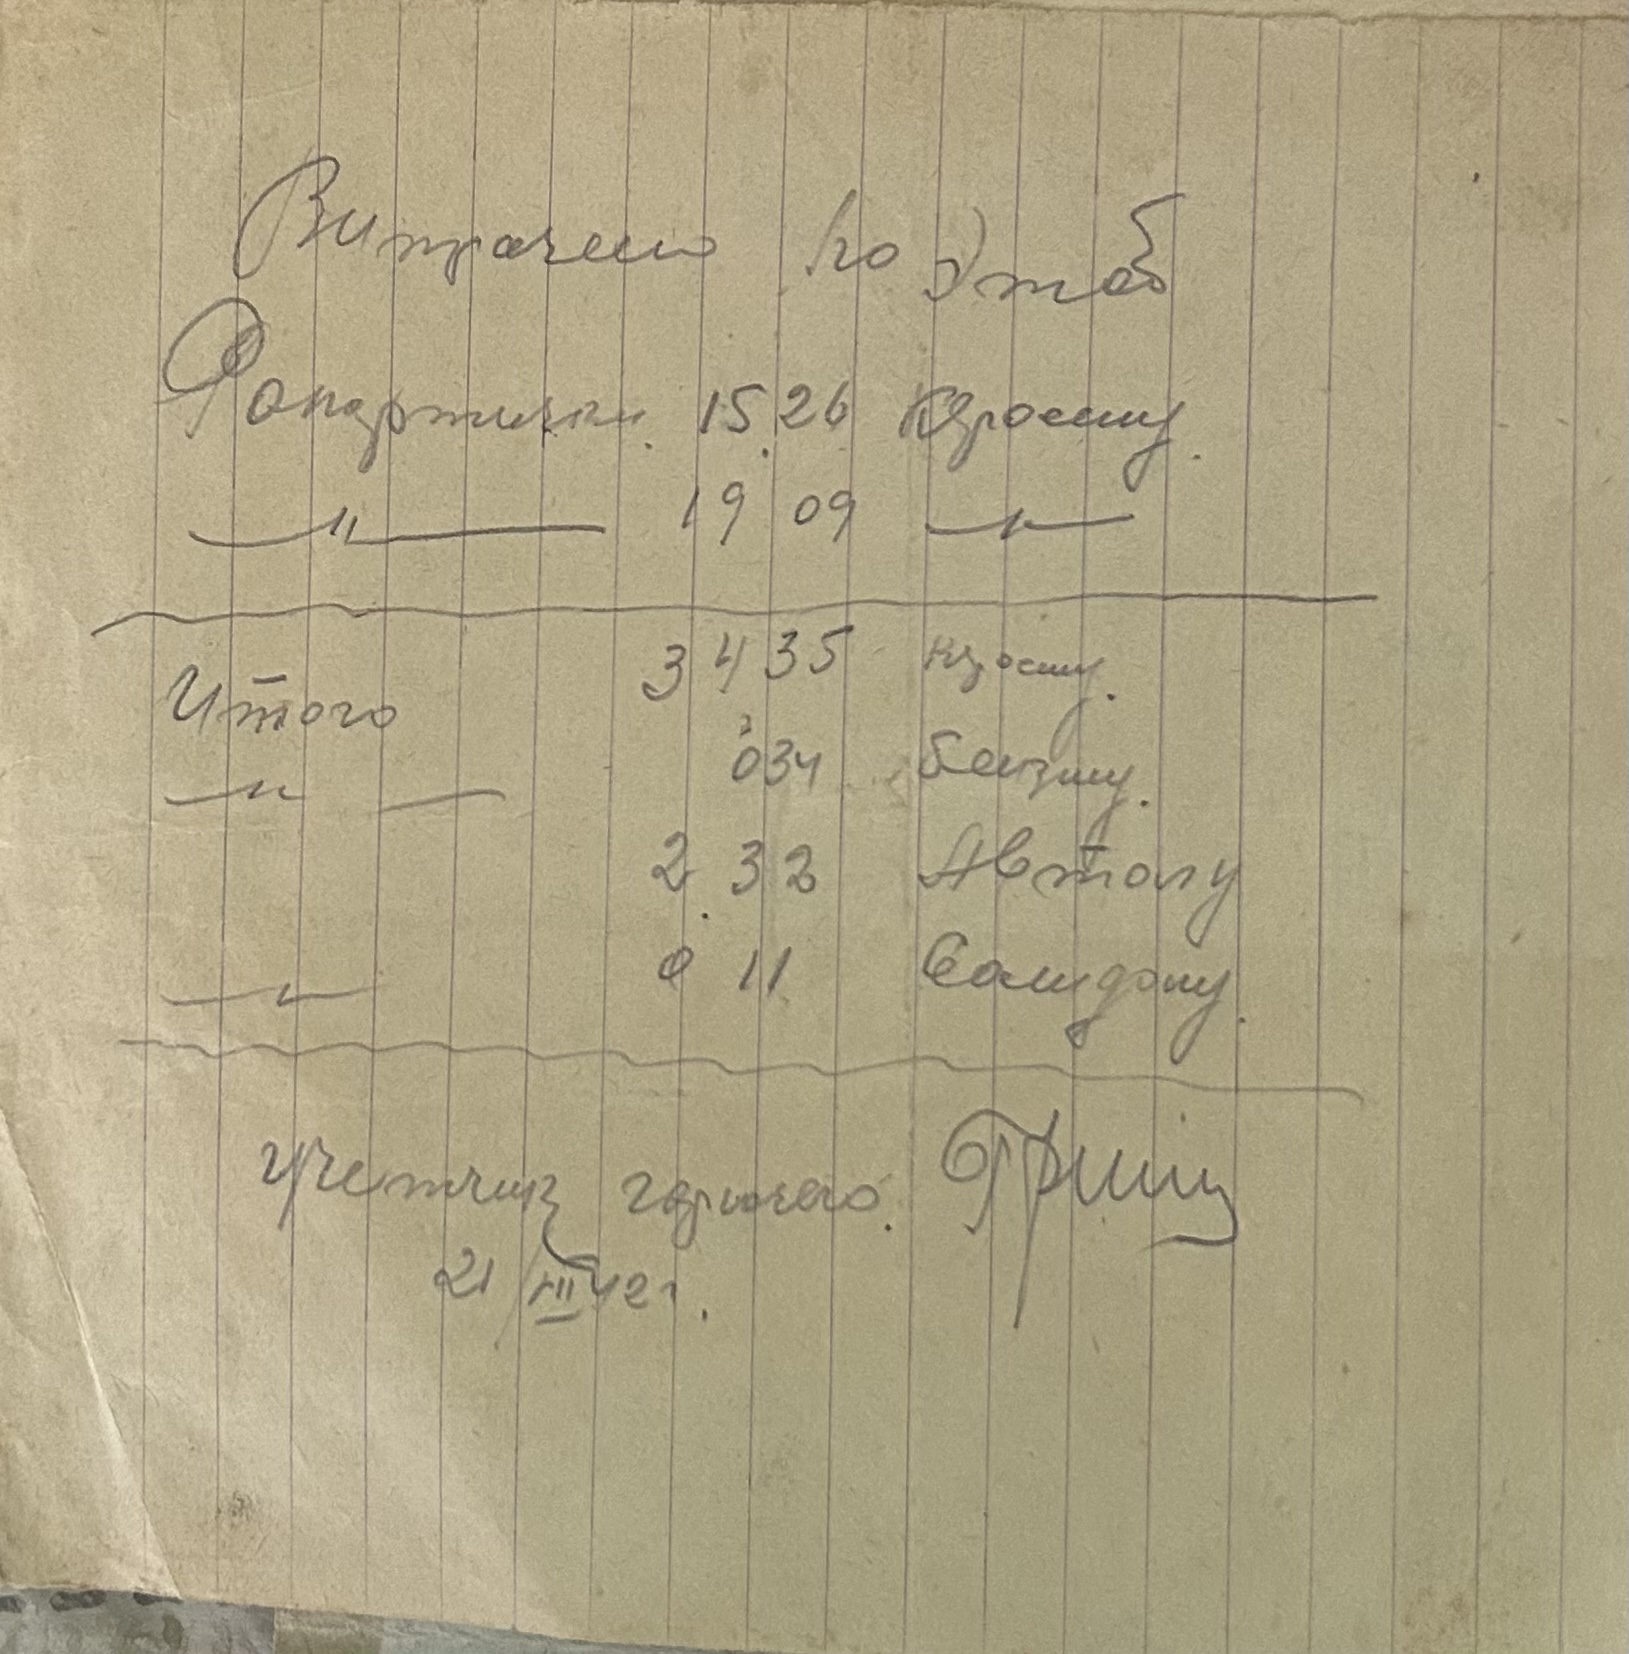 Витрачено по Утоб
15.26 Кросину.
—"— 19 09 —"—
Итого 3435 Кросину.
—"— — 034 Бензину.
2.32 Автолу
—"— 0 11 Солидолу.
Учетчик горючего.
21/VII 42 г.